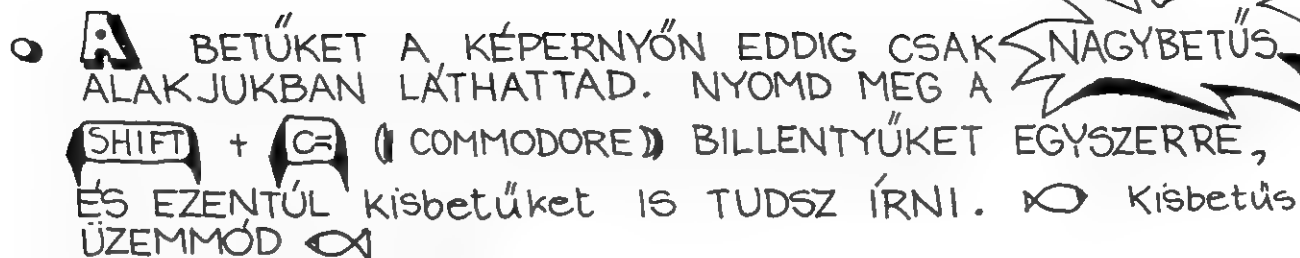 A BETŰKET A KÉPERNYŐN EDDIG CSAK NAGYBETŰS
ALAKJUKBAN LÁTHATTAD. NYOMD MEG A
SHIFT + C= (COMMODORE) BILLENTYŰKET EGYSZERRE,
ÉS EZENTÚL kisbetűket IS TUDSZ ÍRNI. Kisbetűs
ÜZEMMÓD